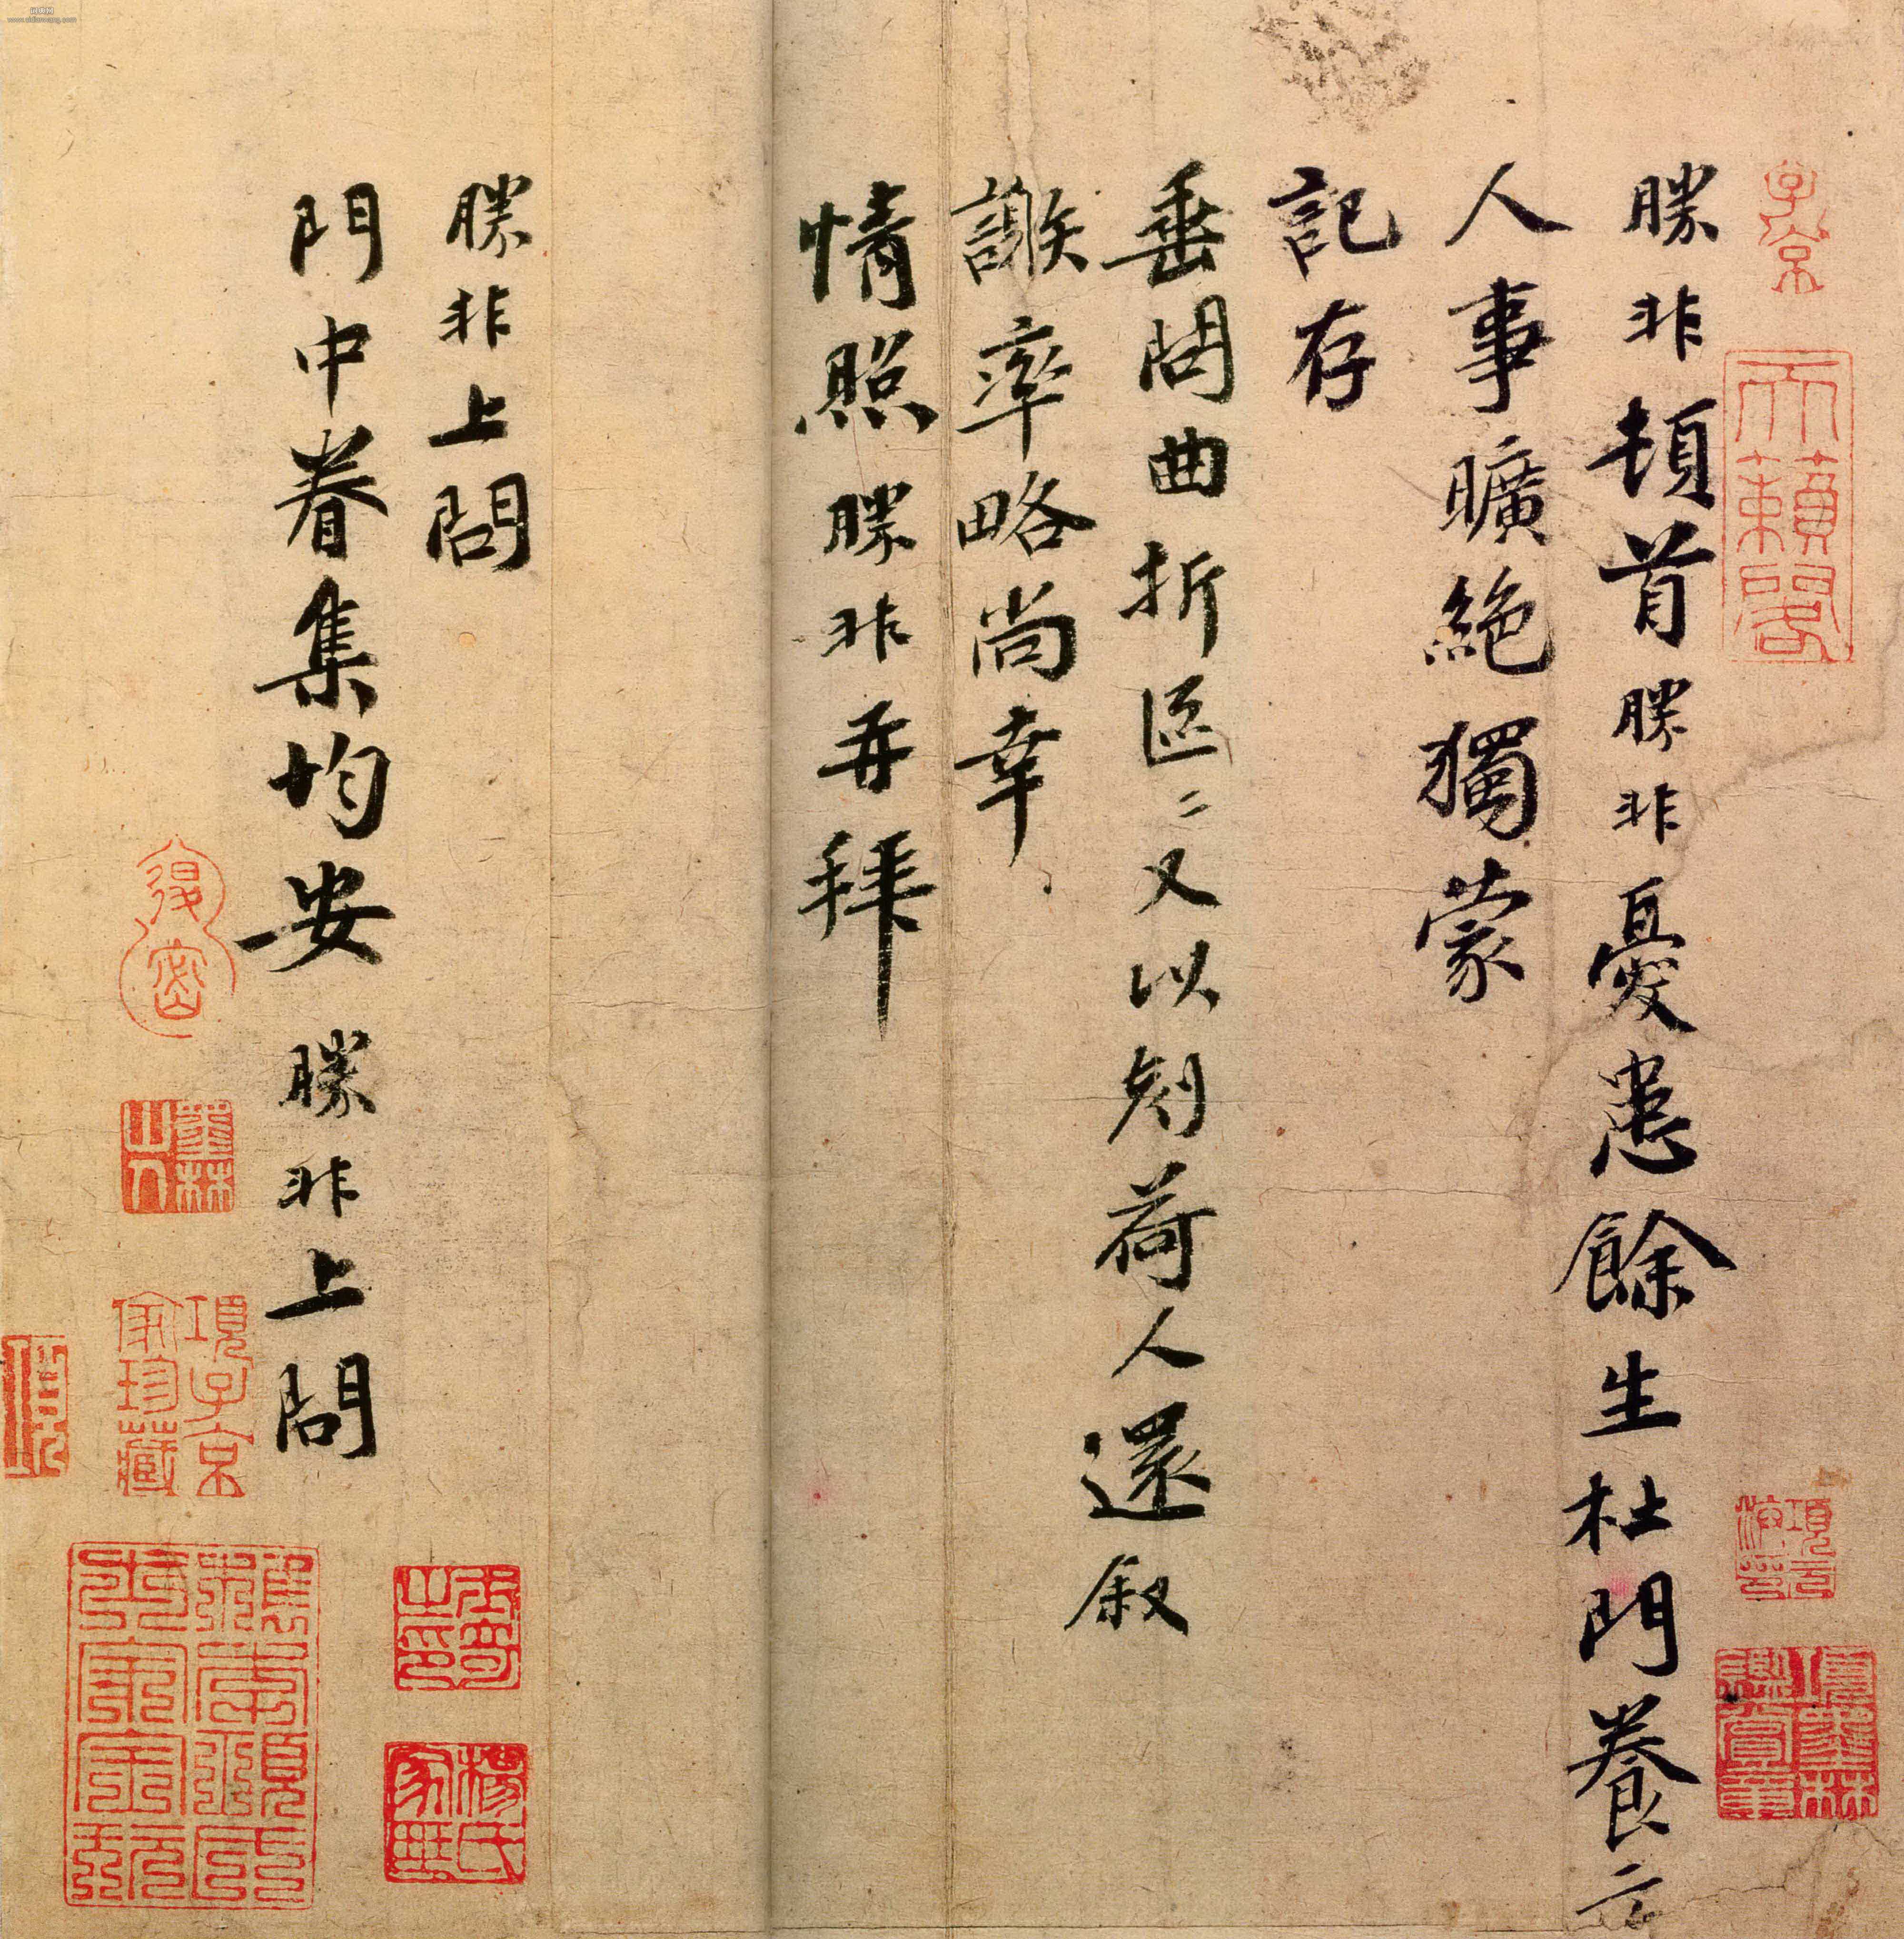 勝非頓首勝非憂患餘生杜門養
人事曠絕獨蒙
記存
垂問曲折區〻又以刻荷人還叙
謝率略尚幸
情照勝非再拜
勝非上問
門中眷集均安勝非上問
子京
天籟閣
項墨林鑑賞章
墨林山人
項子京家珍藏
楊氏家